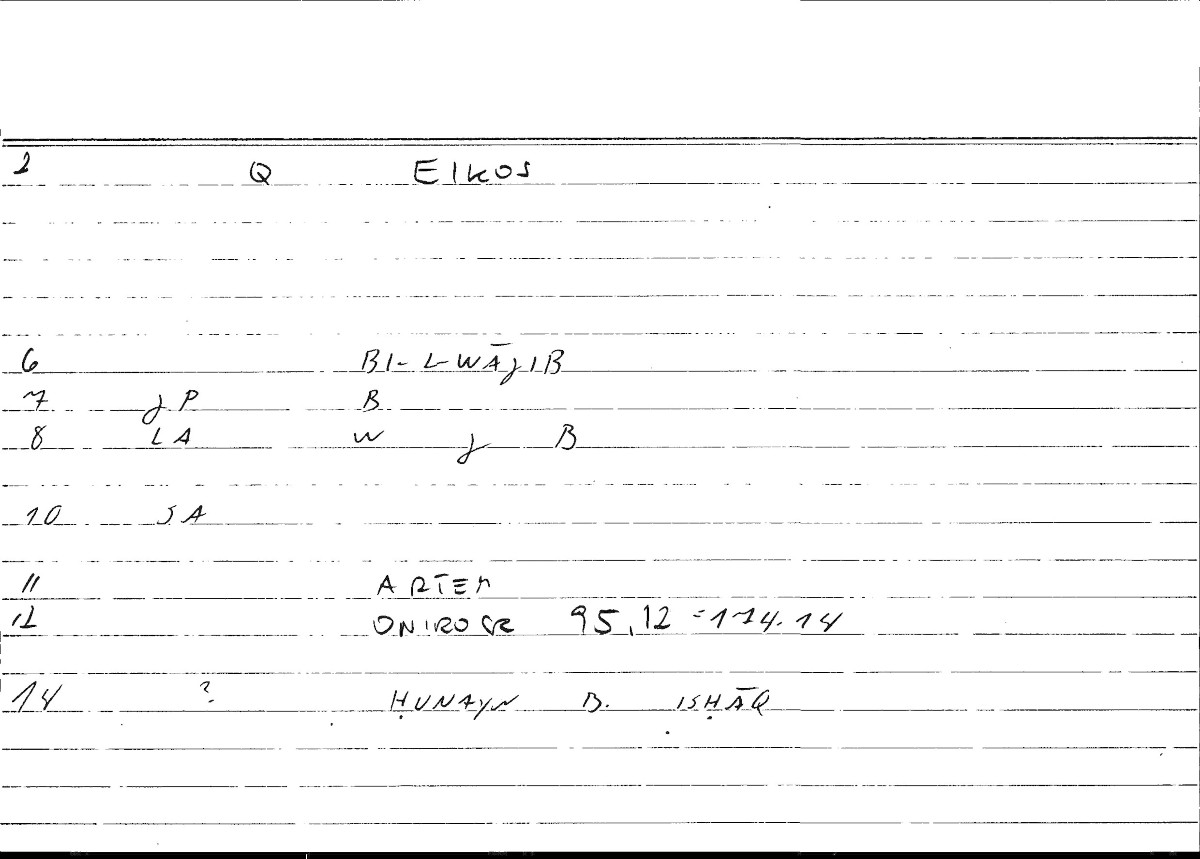 2 Q EIKOS
6 BI-L-WĀJIB
7 JP B
8 LA W J B
10 SA
11 ARTEM
12 ONIROCR 95,12 = 174.14
14 ? ḤUNAYN B. ISḤĀQ